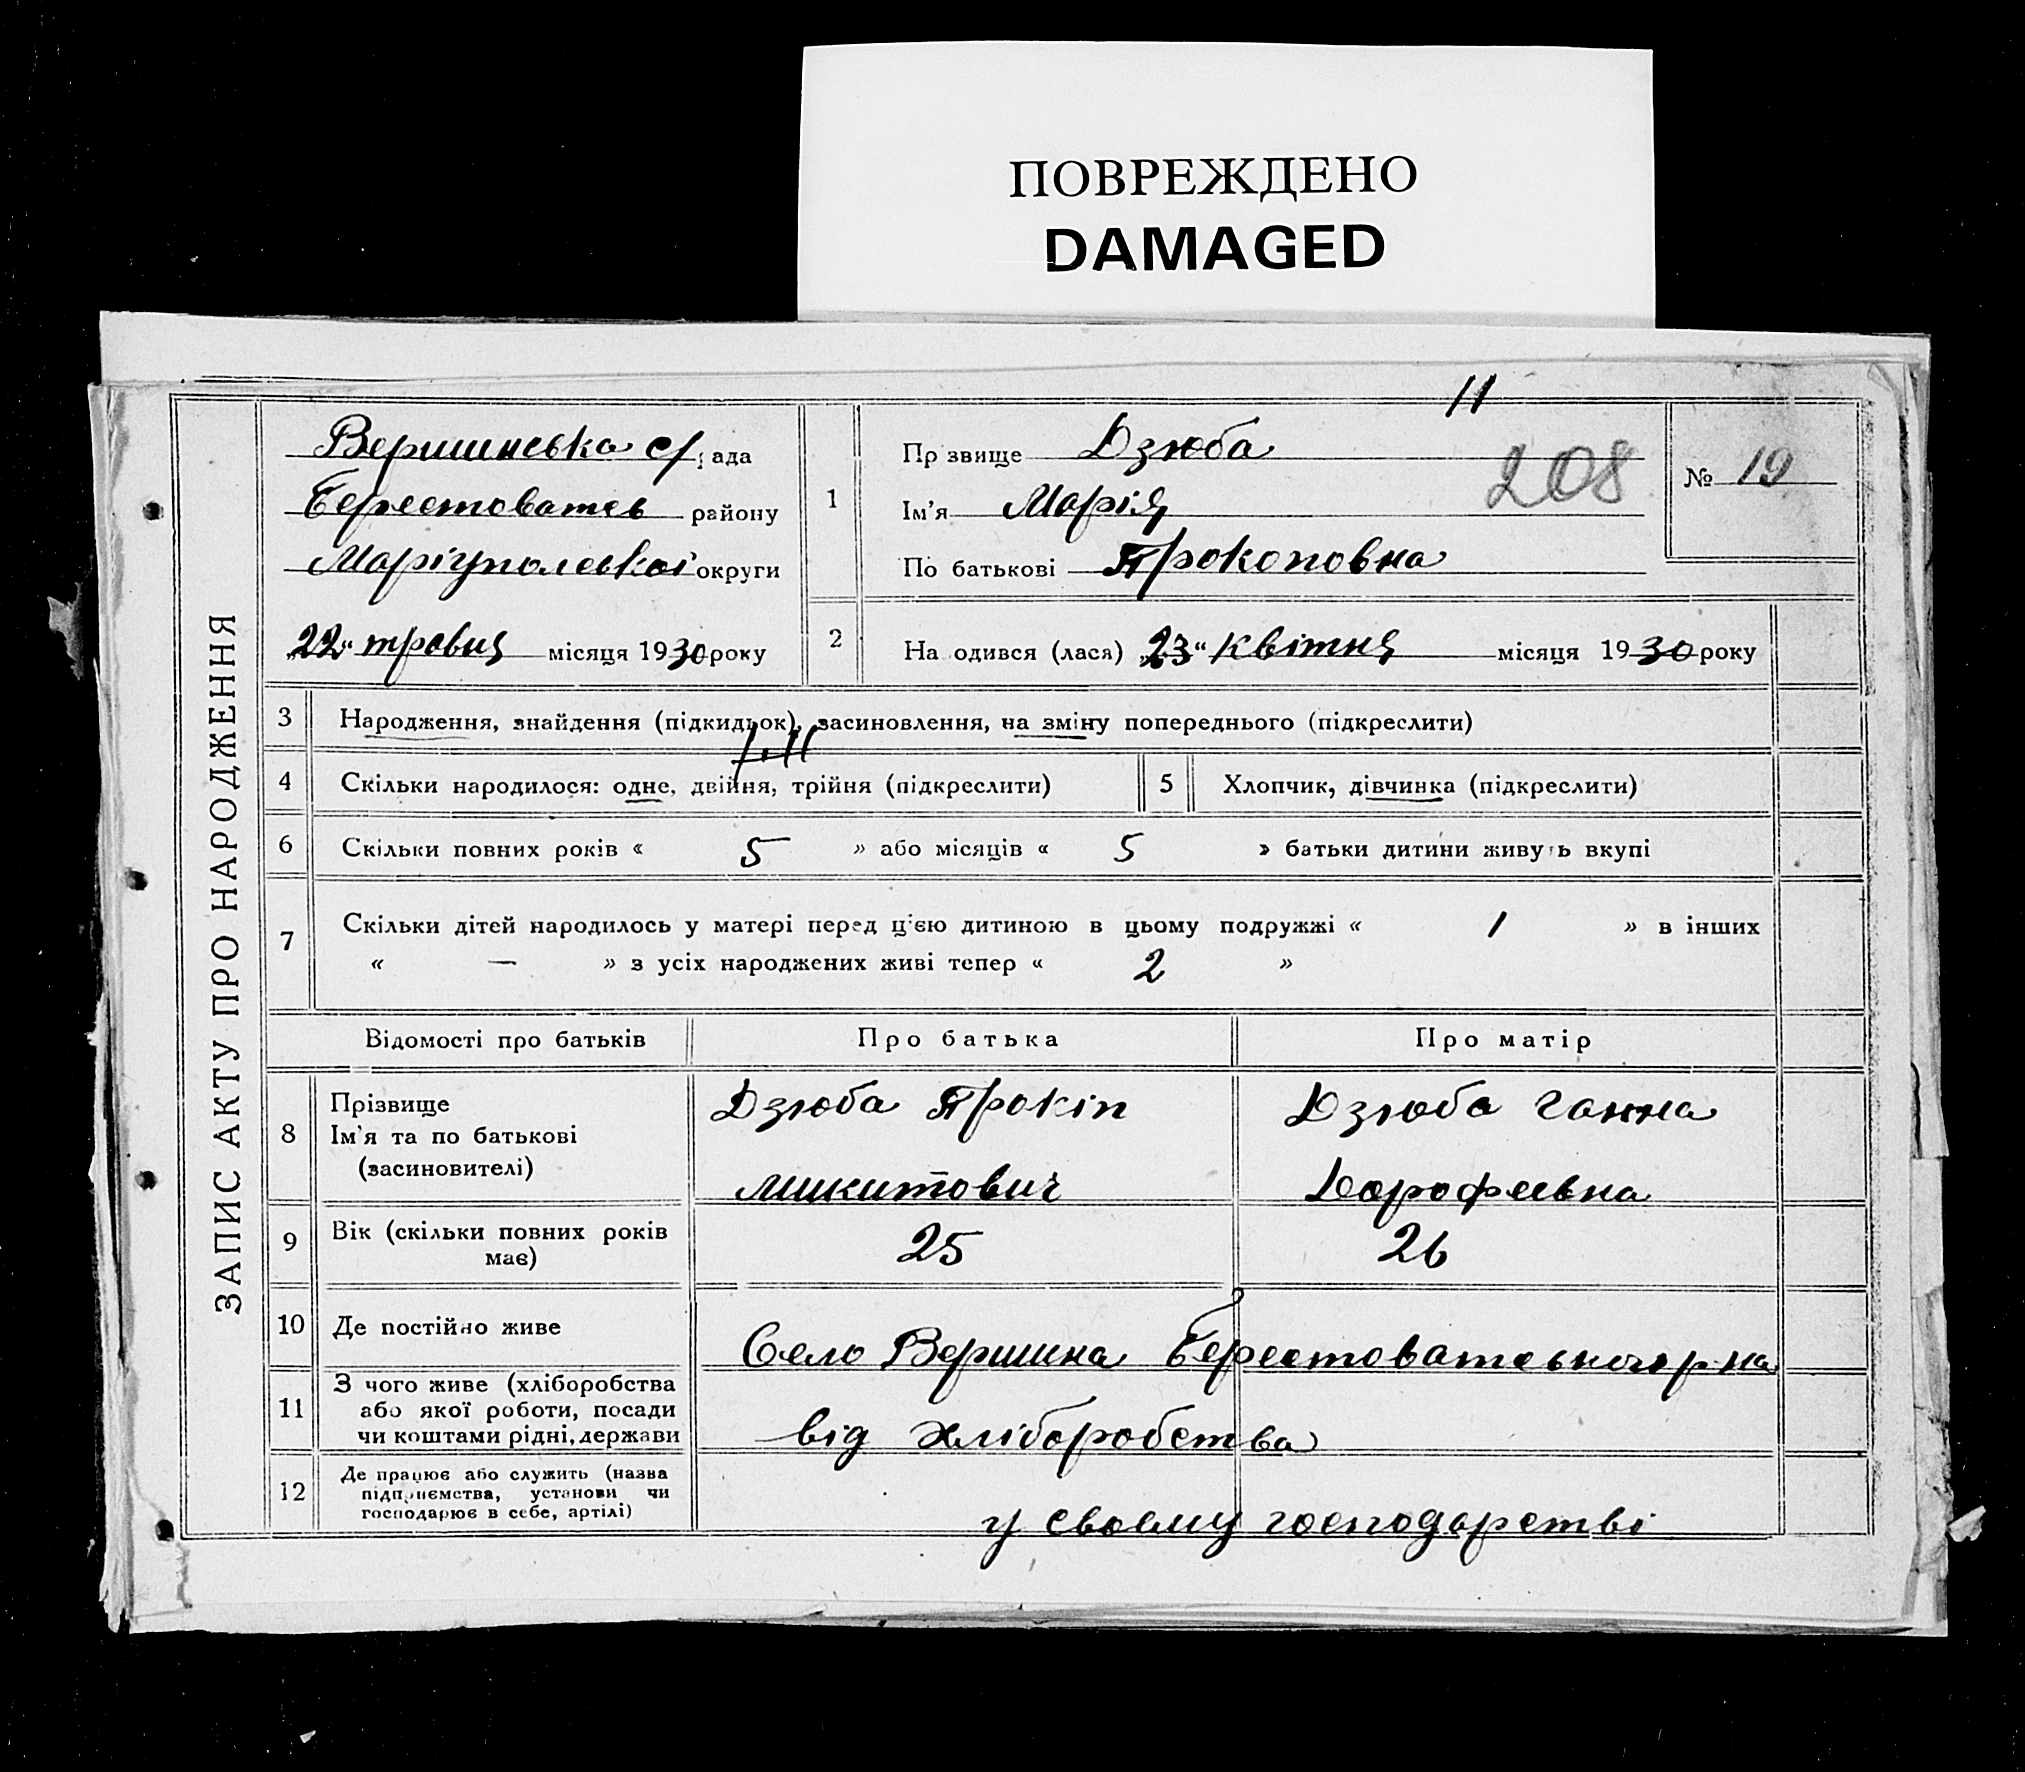 ПОВРЕЖДЕНО
DAMAGED
11
ЗАПИС АКТУ ПРО НАРОДЖЕННЯ
Вершинська с/рада
Берестоватсь району
Маріупольської округи
„22“ травня місяця 1930 року
1
Прізвище Дзюба
208
Ім'я Марія
По батькові Прокоповна
№ 19
2
Народився (лася) „23“ квітня місяця 1930 року
3 Народження, знайдення (підкидьок), засиновлення, на зміну попереднього (підкреслити)
4 Скільки народилося: одне, двійня, трійня (підкреслити)
5 Хлопчик, дівчинка (підкреслити)
6 Скільки повних років « 5 » або місяців « 5 » батьки дитини живуть вкупі
7 Скільки дітей народилось у матері перед ц'єю дитиною в цьому подружжі « 1 » в інших
« — » з усіх народжених живі тепер « 2 »
Відомості про батьків
Про батька
Про матір
8 Прізвище
Ім'я та по батькові
(засиновителі)
Дзюба Прокіп
Микитович
Дзюба Ганна
Дорофеевна
9 Вік (скільки повних років
має)
25
26
10 Де постійно живе
Село Вершина Берестоватського р-на
11 З чого живе (хліборобства
або якої роботи, посади
чи коштами рідні, держави
від хліборобства
12 Де працює або служить (назва
підприємства, установи чи
господарює в себе, артілі)
у своєму господарстві